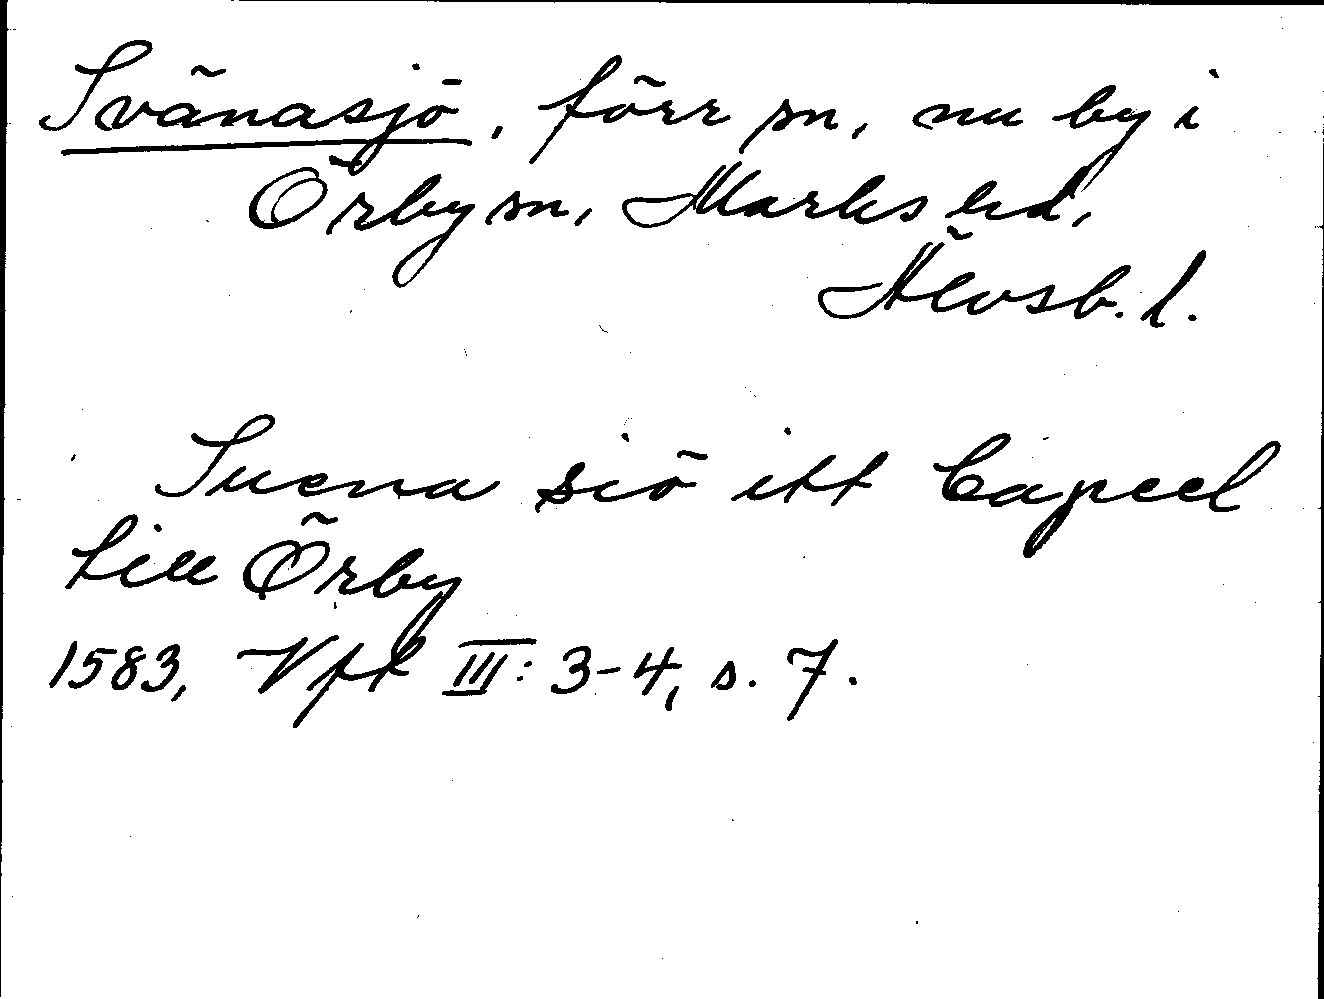 Svänasjö, förr sn, nu by i
Örby sn, Marks hd,
Älvsb. l.
Suena siö itt Capeel
till Örby
1583, Vft III: 3-4, s. 7.